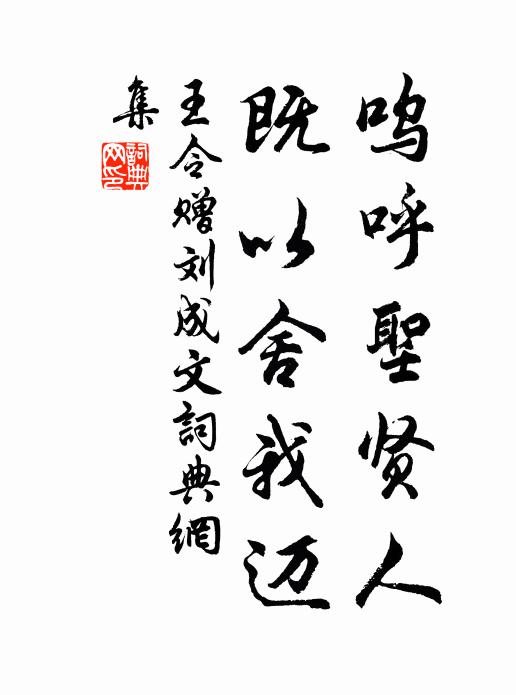 呜呼聖贤人
既以舍我迈
王令赠刘成文詞典網
集
詞典
网印